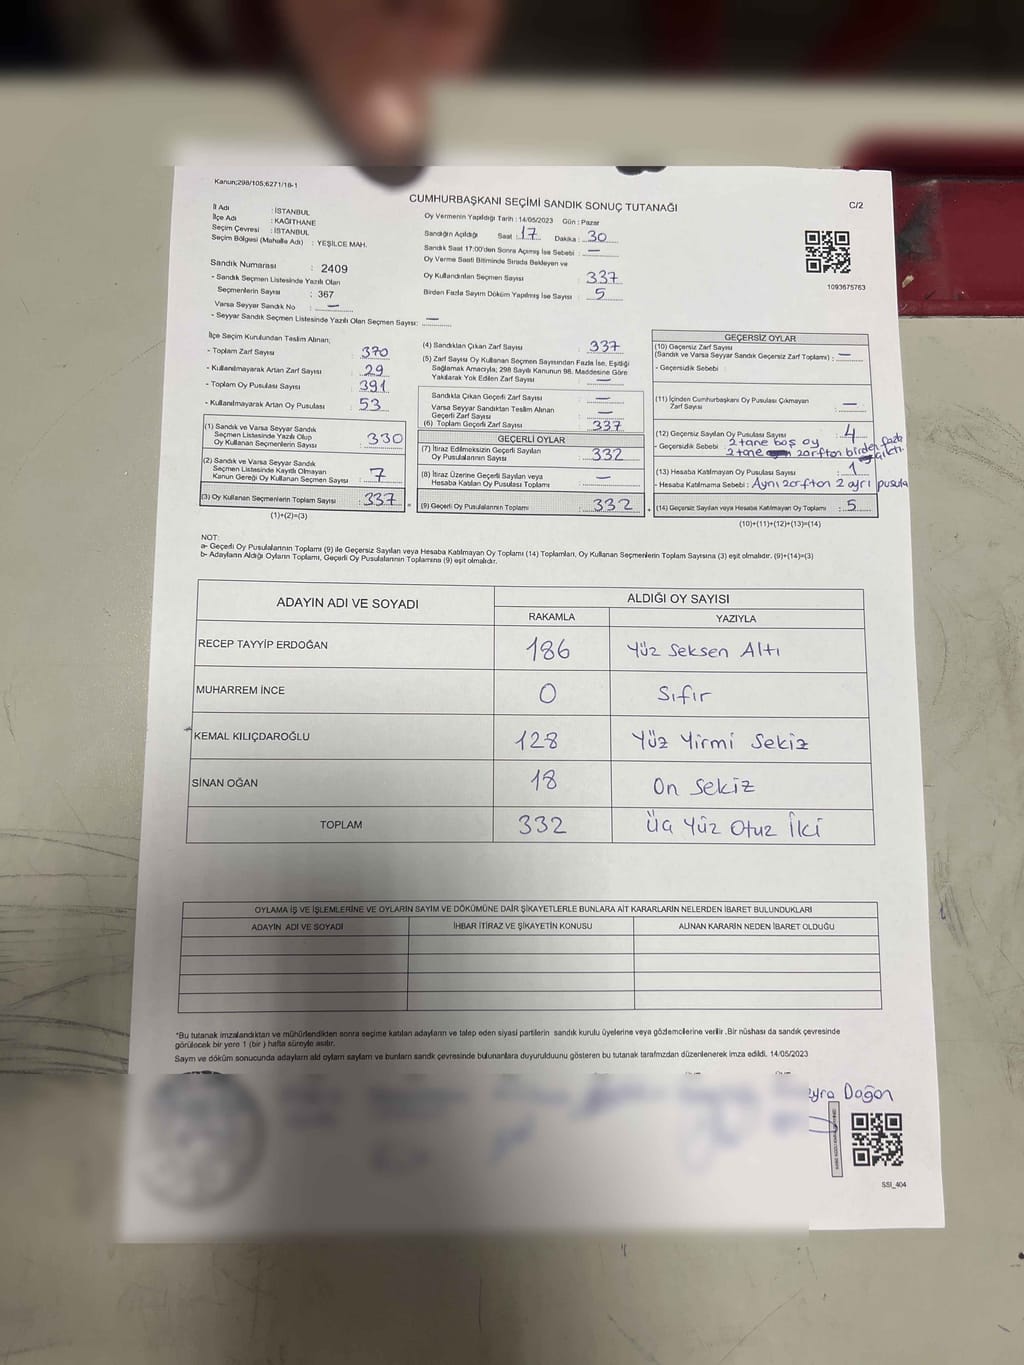 Kanun;298/105;6271/18-1
CUMHURBAŞKANI SEÇİMİ SANDIK SONUÇ TUTANAĞI
C/2
İl Adı : İSTANBUL
İlçe Adı : KAĞITHANE
Seçim Çevresi : İSTANBUL
Seçim Bölgesi (Mahalle Adı) : YEŞİLCE MAH.
Sandık Numarası : 2409
- Sandık Seçmen Listesinde Yazılı Olan
Seçmenlerin Sayısı : 367
Varsa Seyyar Sandık No : —
- Seyyar Sandık Seçmen Listesinde Yazılı Olan Seçmen Sayısı: —
Oy Vermenin Yapıldığı Tarih : 14/05/2023 Gün : Pazar
Sandığın Açıldığı Saat : 17 Dakika : 30
Sandık Saat 17:00'den Sonra Açılmış İse Sebebi : —
Oy Verme Saati Bitiminde Sırada Bekleyen ve
Oy Kullandırılan Seçmen Sayısı : 337
Birden Fazla Sayım Döküm Yapılmış İse Sayısı : 5
1093675763
İlçe Seçim Kurulundan Teslim Alınan;
- Toplam Zarf Sayısı : 370
- Kullanılmayarak Artan Zarf Sayısı : 29
- Toplam Oy Pusulası Sayısı : 391
- Kullanılmayarak Artan Oy Pusulası : 53
(1) Sandık ve Varsa Seyyar Sandık
Seçmen Listesinde Yazılı Olup
Oy Kullanan Seçmenlerin Sayısı : 330
(2) Sandık ve Varsa Seyyar Sandık
Seçmen Listesinde Kayıtlı Olmayan
Kanun Gereği Oy Kullanan Seçmen Sayısı : 7
(3) Oy Kullanan Seçmenlerin Toplam Sayısı : 337
(1)+(2)=(3)
(4) Sandıktan Çıkan Zarf Sayısı : 337
(5) Zarf Sayısı Oy Kullanan Seçmen Sayısından Fazla İse, Eşitliği
Sağlamak Amacıyla; 298 Sayılı Kanunun 98. Maddesine Göre
Yakılarak Yok Edilen Zarf Sayısı : —
Sandıkta Çıkan Geçerli Zarf Sayısı : —
Varsa Seyyar Sandıktan Teslim Alınan
Geçerli Zarf Sayısı : —
(6) Toplam Geçerli Zarf Sayısı : 337
GEÇERLİ OYLAR
(7) İtiraz Edilmeksizin Geçerli Sayılan
Oy Pusulalarının Sayısı : 332
(8) İtiraz Üzerine Geçerli Sayılan veya
Hesaba Katılan Oy Pusulası Toplamı : —
(9) Geçerli Oy Pusulalarının Toplamı : 332
GEÇERSİZ OYLAR
(10) Geçersiz Zarf Sayısı
(Sandık ve Varsa Seyyar Sandık Geçersiz Zarf Toplamı) : —
- Geçersizlik Sebebi :
(11) İçinden Cumhurbaşkanı Oy Pusulası Çıkmayan
Zarf Sayısı : —
(12) Geçersiz Sayılan Oy Pusulası Sayısı : 4
- Geçersizlik Sebebi : 2 tane boş oy
2 tane zarftan birden fazla
(13) Hesaba Katılmayan Oy Pusulası Sayısı : 1
- Hesaba Katılmama Sebebi : Aynı zarftan 2 ayrı pusula
(14) Geçersiz Sayılan veya Hesaba Katılmayan Oy Toplamı : 5
(10)+(11)+(12)+(13)=(14)
NOT:
a- Geçerli Oy Pusulalarının Toplamı (9) ile Geçersiz Sayılan veya Hesaba Katılmayan Oy Toplamı (14) Toplamları, Oy Kullanan Seçmenlerin Toplam Sayısına (3) eşit olmalıdır. (9)+(14)=(3)
b- Adayların Aldığı Oyların Toplamı, Geçerli Oy Pusulalarının Toplamına (9) eşit olmalıdır.
ADAYIN ADI VE SOYADI ALDIĞI OY SAYISI
RAKAMLA YAZIYLA
RECEP TAYYİP ERDOĞAN 186 Yüz Seksen Altı
MUHARREM İNCE 0 Sıfır
KEMAL KILIÇDAROĞLU 128 Yüz Yirmi Sekiz
SİNAN OĞAN 18 On Sekiz
TOPLAM 332 Üç Yüz Otuz İki
OYLAMA İŞ VE İŞLEMLERİNE VE OYLARIN SAYIM VE DÖKÜMÜNE DAİR ŞİKAYETLERLE BUNLARA AİT KARARLARIN NELERDEN İBARET BULUNDUKLARI
ADAYIN ADI VE SOYADI İHBAR İTİRAZ VE ŞİKAYETİN KONUSU ALINAN KARARIN NEDEN İBARET OLDUĞU
*Bu tutanak imzalandıktan ve mühürlendikten sonra seçime katılan adayların ve talep eden siyasi partilerin sandık kurulu üyelerine veya gözlemcilerine verilir .Bir nüshası da sandık çevresinde
görülecek bir yere 1 (bir ) hafta süreyle asılır.
Sayım ve döküm sonucunda adayların ald oyların sayların ve bunların sandk çevresinde bulunanlara duyurulduunu gösteren bu tutanak tarafmzdan düzenlenerek imza edildi. 14/05/2023
eyra Doğan
SSI_404